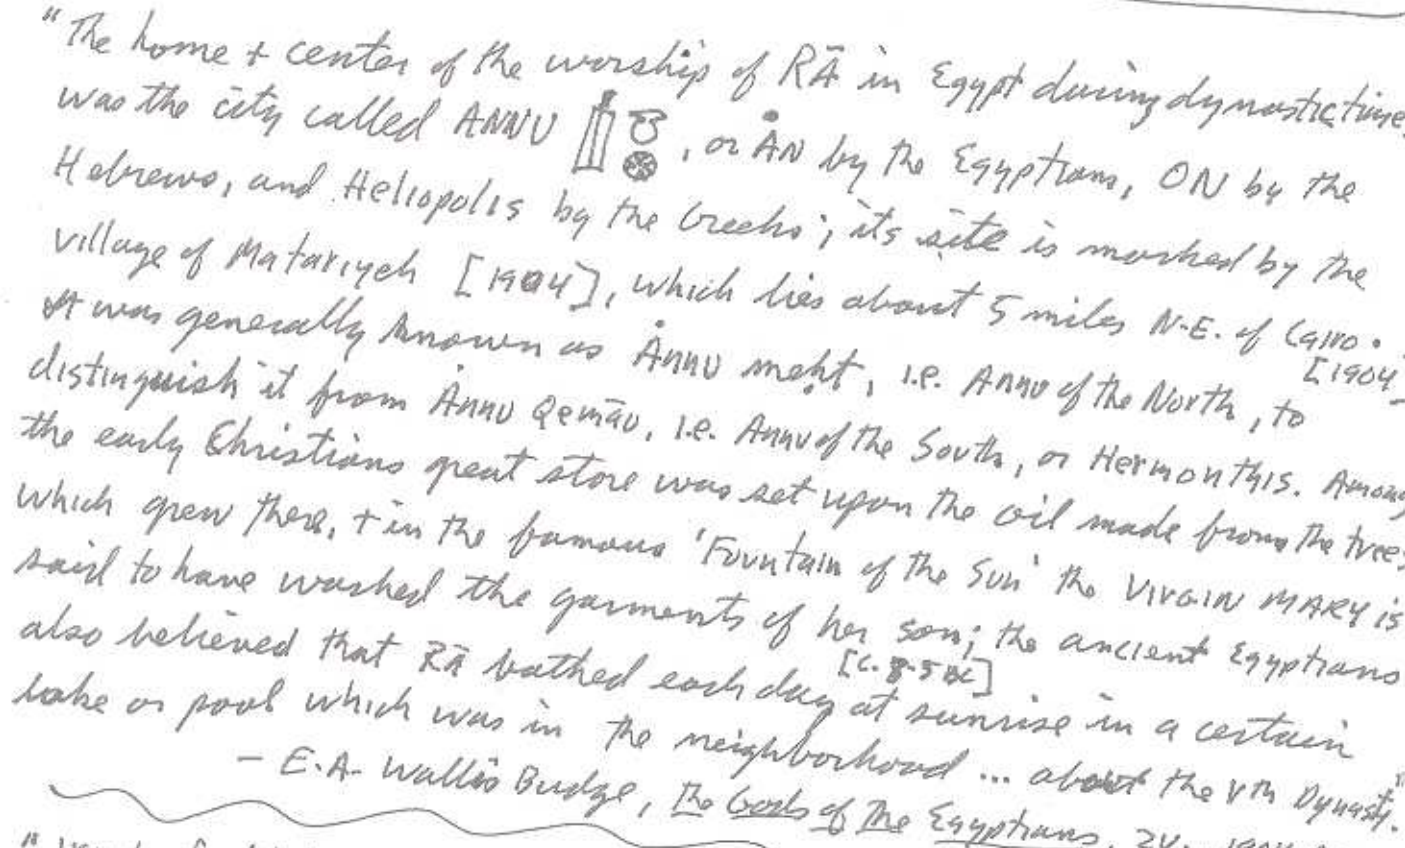 "The home + center of the worship of RĀ in Egypt during dynastic times
was the city called ANNU , or ȦN by the Egyptians, ON by the
Hebrews, and Heliopolis by the Greeks; its site is marked by the
village of Matariyeh [1904], which lies about 5 miles N.E. of Cairo.
[1904
It was generally known as Ȧnnu meḥt, i.e. Annu of the North, to
distinguish it from Ȧnnu Qemāu, i.e. Annu of the South, or Hermonthis. Among
the early Christians great store was set upon the oil made from the trees
which grew there, + in the famous 'Fountain of the Sun' the VIRGIN MARY is
said to have washed the garments of her son; the ancient Egyptians
also believed that RĀ bathed each day at sunrise in a certain
lake or pool which was in the neighborhood ... about the Vth Dynasty."
- E.A. Wallis Budge, The Gods of the Egyptians, 2V.